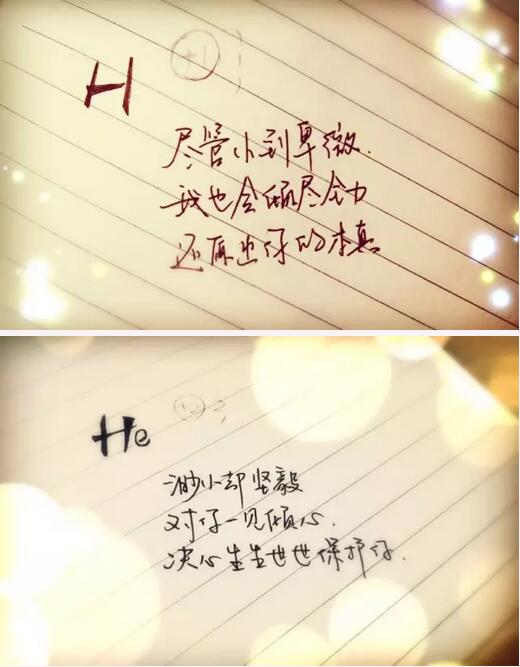 H +1
尽管小到卑微.
我也会倾尽全力
还原出你的本真
He +2 2
渺小却坚毅
对你一见倾心.
决心生生世世保护你.